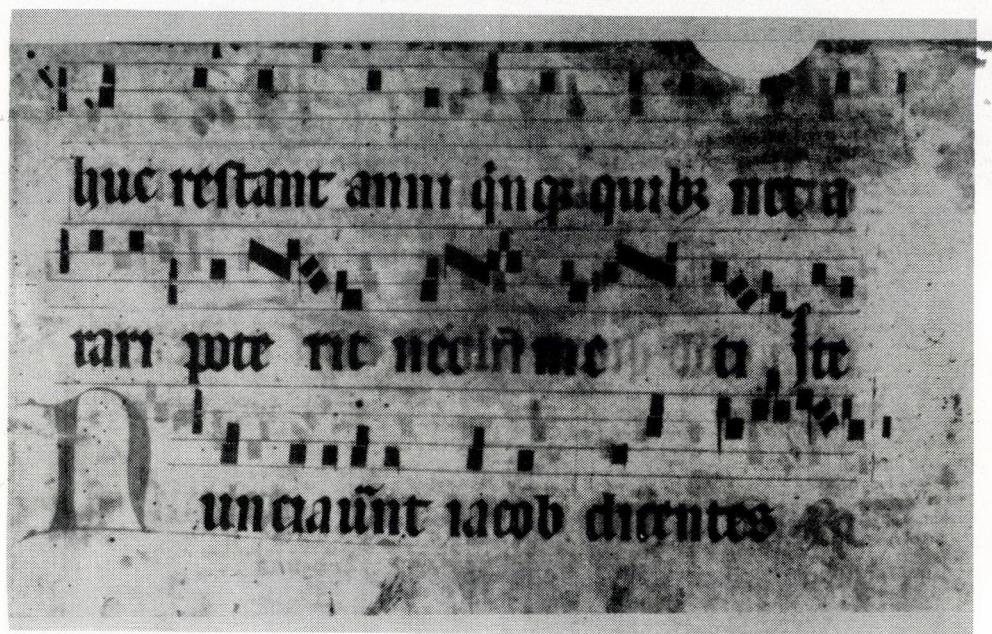 huc restant anni q̇nqꝫ quibꝫ nec a
rari pote rit nec me ti Jte
Nunciaũnt iacob dicentes